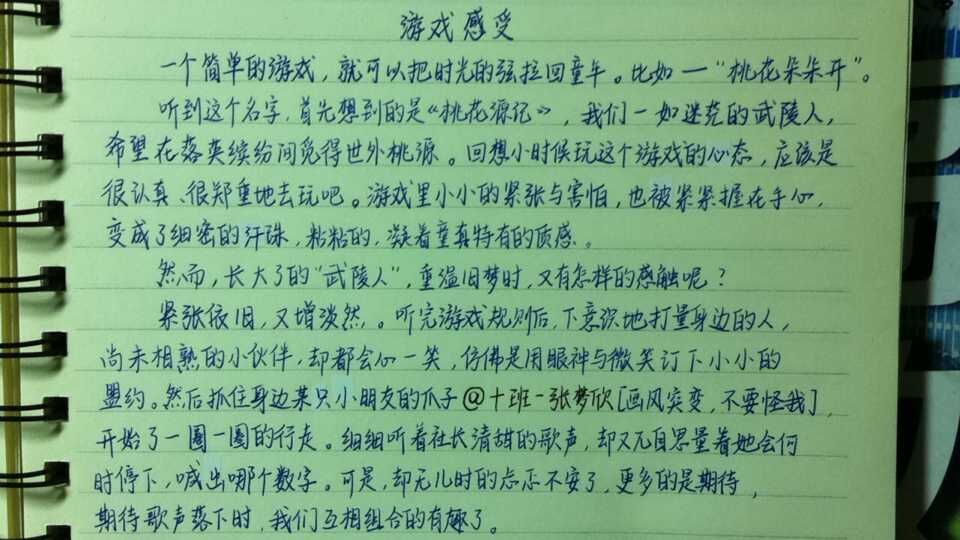 游戏感受
一个简单的游戏，就可以把时光的弦拉回童年。比如一“桃花朵朵开”。
听到这个名字，首先想到的是《桃花源记》，我们一如迷茫的武陵人，
希望在落英缤纷间觅得世外桃源。回想小时候玩这个游戏的心态，应该是
很认真、很郑重地去玩吧。游戏里小小的紧张与害怕，也被紧紧握在手心，
变成了细密的汗珠，粘粘的，凝着童真特有的质感。
然而，长大了的“武陵人”，重温旧梦时，又有怎样的感触呢？
紧张依旧，又增淡然。听完游戏规则后，下意识地打量身边的人，
尚未相熟的小伙伴，却都会心一笑，仿佛是用眼神与微笑订下小小的
盟约。然后抓住身边某只小朋友的爪子@十班-张梦欣[画风突变，不要怪我]，
开始了一圈一圈的行走。细细听着社长清甜的歌声，却又兀自思量着她会何
时停下，喊出哪个数字。可是，却无儿时的忐忑不安了，更多的是期待，
期待歌声落下时，我们互相组合的有趣了。